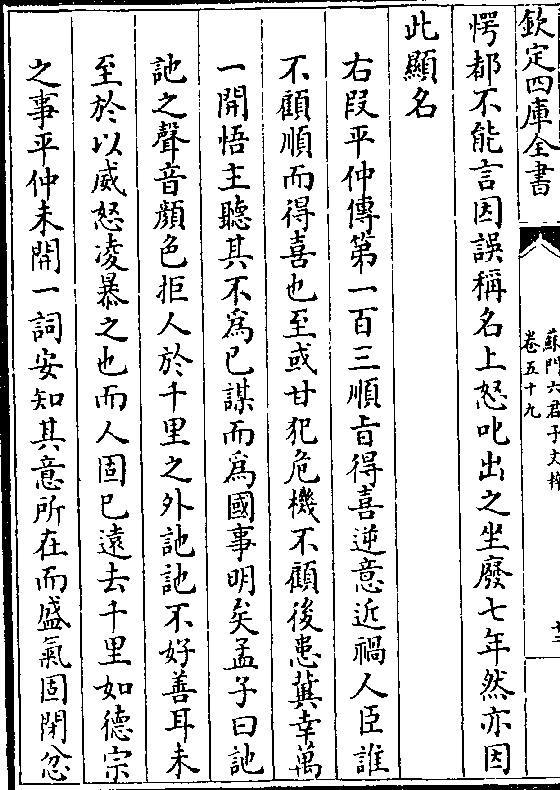 欽定四庫全書
蘇門六君子文粹
卷五十九
愕都不能言因誤稱名上怒叱出之坐廢七年然亦因
此顯名
右段平仲傳第一百三順㫖得喜逆意近禍人臣誰
不顧順而得喜也至或甘犯危機不顧後患冀幸萬
一開悟主聽其不為已謀而為國事明矣孟子曰訑
訑之聲音顔色拒人於千里之外訑訑不好善耳未
至於以威怒凌暴之也而人固已遠去千里如德宗
之事平仲未開一詞安知其意所在而盛氣固閉忿